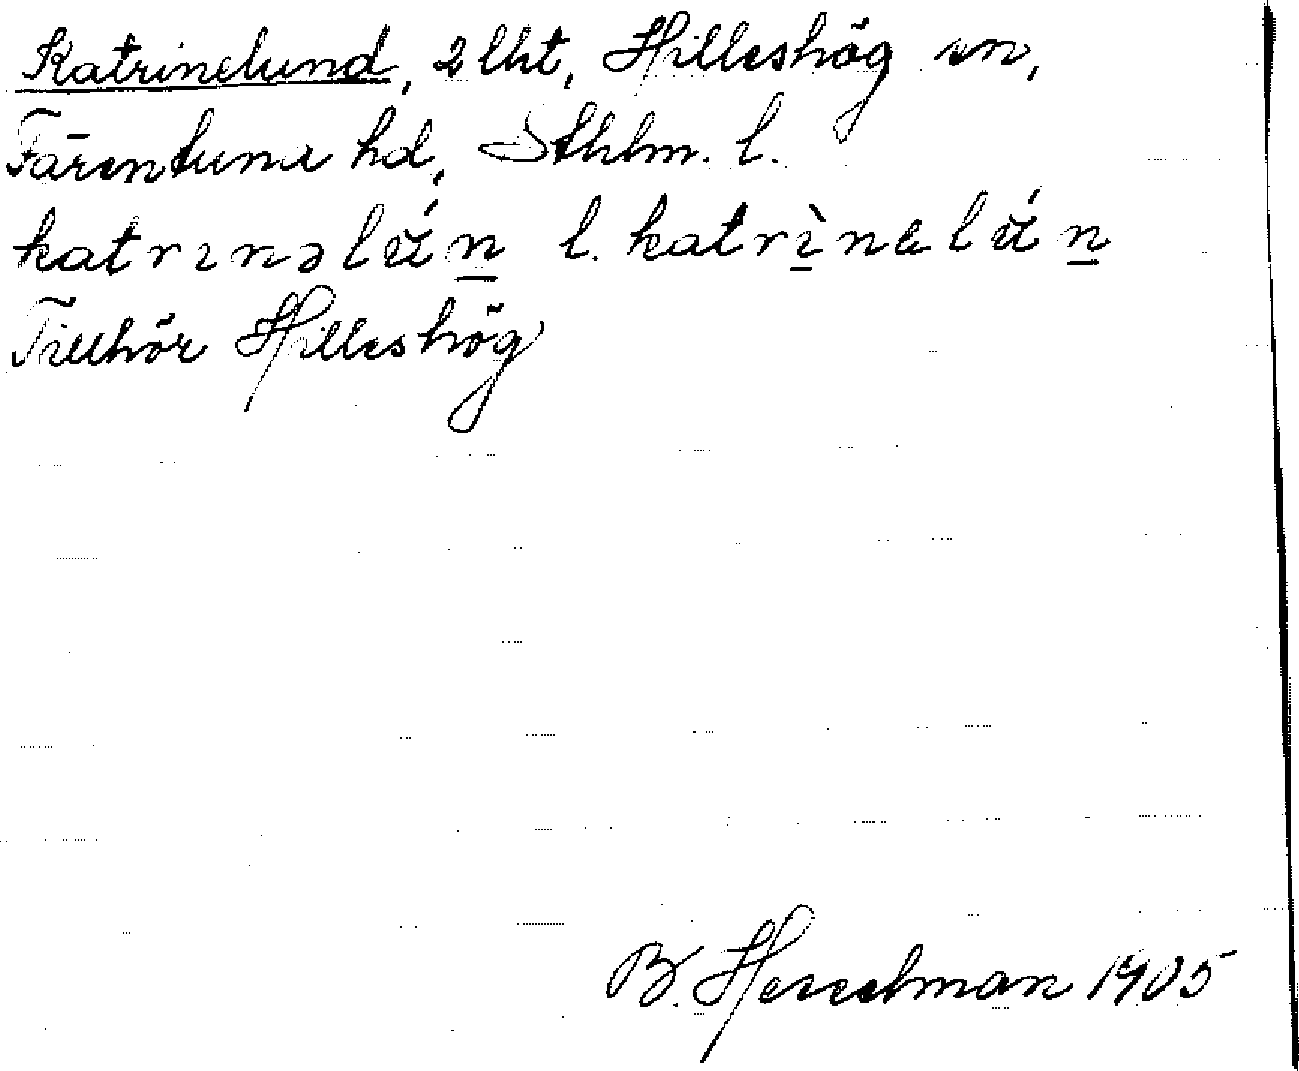 Katrinelund, 2 lht, Hilleshög sn,
Färentuna hd, Sthlm. l.
katrınəlún l. katrìnəlún
Tillhör Hilleshög
B. Hesselman 1905